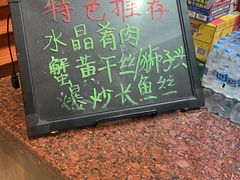 特色推荐
水晶肴肉
蟹黄干丝/狮子头
爆炒长鱼丝